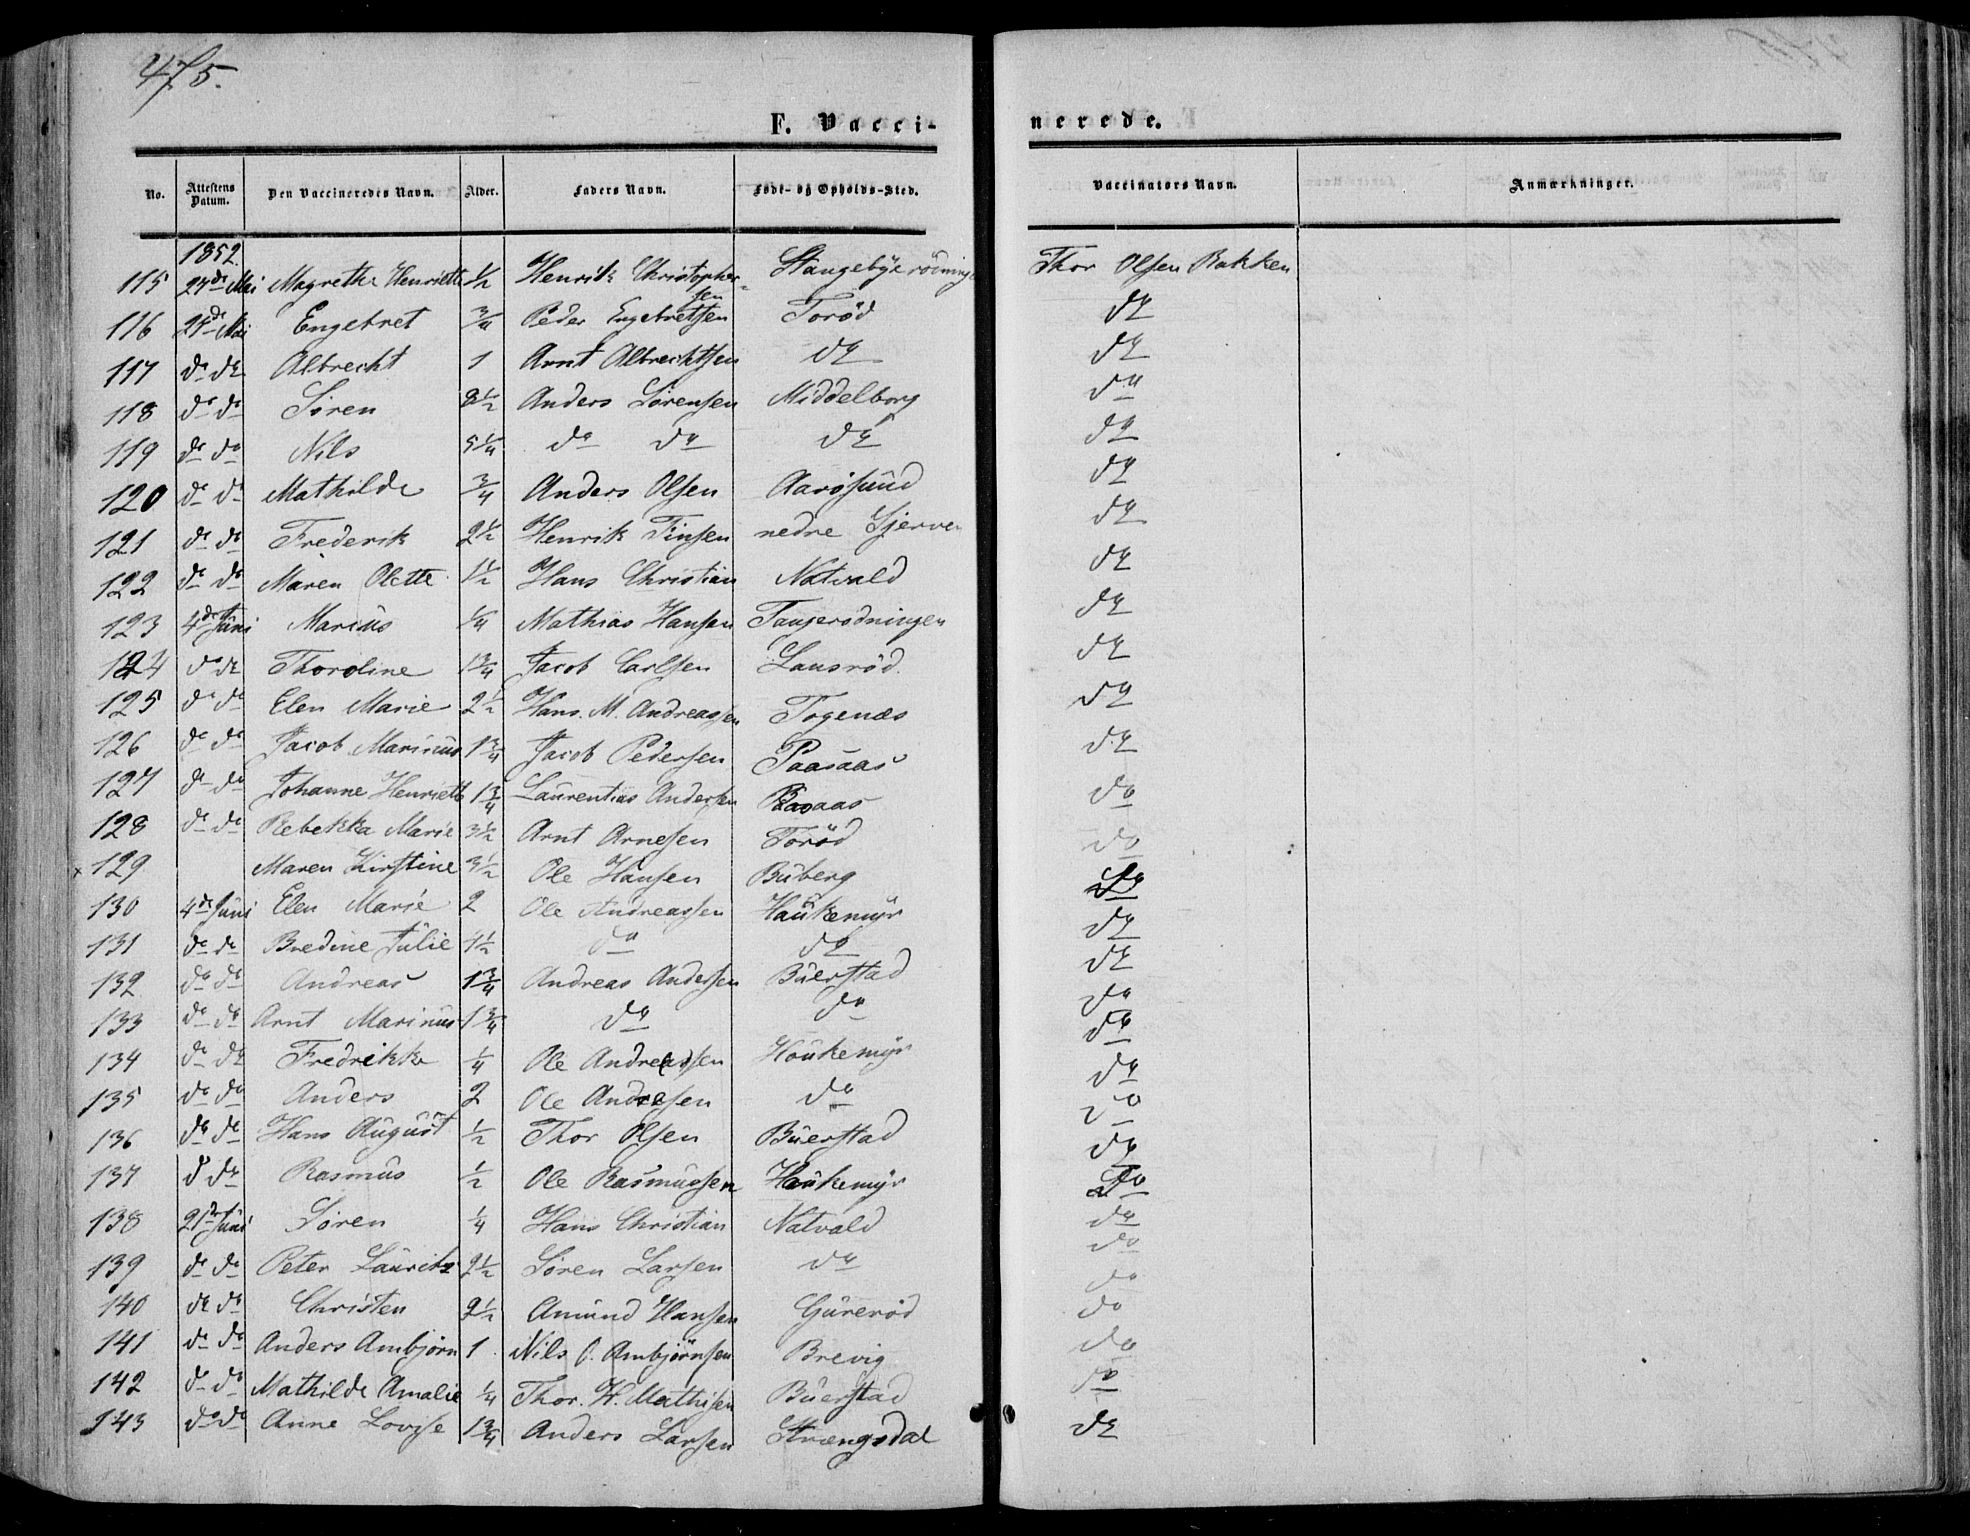 475.
F. Vacci-
nerede.
No. Attestens Datum. Den Vaccineredes Navn. Alder. Faders Navn. Føde- og Opholds-Sted. Vaccinators Navn. Anmærkninger.
1852.
115 24de Mai Magrethe Henriette 1/2 Henrik Christophersen Stangebye rödning Thor Olsen Bakken
116 24de Mai Engebret 3/4 Peder Engebretsen Torød do
117 do do Albrecht 1 Arnt Albrechtsen do do
118 do do Søren 8 1/2 Anders Sørensen Middelborg do
119 do do Nils 5 1/4 do do do do
120 do do Mathilde 3/4 Anders Olsen Aarøsund do
121 do do Frederik 2 1/2 Henrik Finsen nedre Gjerve do
122 do do Maren Olette 1 1/2 Hans Christian Natvald do
123 4de Juni Marius 1/4 Mathias Hansen Tangerødningen do
124 do do Thoroline 1 3/4 Jacob Carlsen Lansrød. do
125 do do Elen Marie 2 1/2 Hans. M. Andreassen Togenæs do
126 do do Jacob Marinus 1 3/4 Jacob Pedersen Paasaas do
127 do do Johanne Henriette 1 3/4 Laurentius Andersen Basaas do
128 do do Rebekka Marie 3 1/2 Arnt Arnesen Torød do
x 129 Maren Kirstine 3 1/2 Ole Hansen Buberg do
130 4de Juni Elen Marie 2 Ole Andreassen Haukemyr do
131 do do Bredine Julie 4 1/2 do do do
132 do do Andreas 1 3/4 Andreas Andersen Buerstad do
133 do do Arnt Marinus 1 3/4 do do do
134 do do Fredrikke 1/4 Ole Andreassen Houkemyr do
135 do do Anders 2 Ole Andresen do do
136 do do Hans August 1/2 Thor Olsen Buerstad do
137 d do Rasmus 1/2 Ole Rasmussen Houkemyr do
138 21de Juni Søren 1/4 Hans Christian Natvald do
139 do do Peter Lauritz 2 1/2 Søren Larsen do do
140 do do Christen 2 1/2 Amund Hansen Gurerød do
141 do do Anders Ambjørn 1 Nils O. Ambjørnsen Brevig do
142 do do Mathilde Amalie 1/4 Thor. H. Mathisen Buerstad do
143 do do Anne Lovise 1 3/4 Anders Larsen Strængsdal do